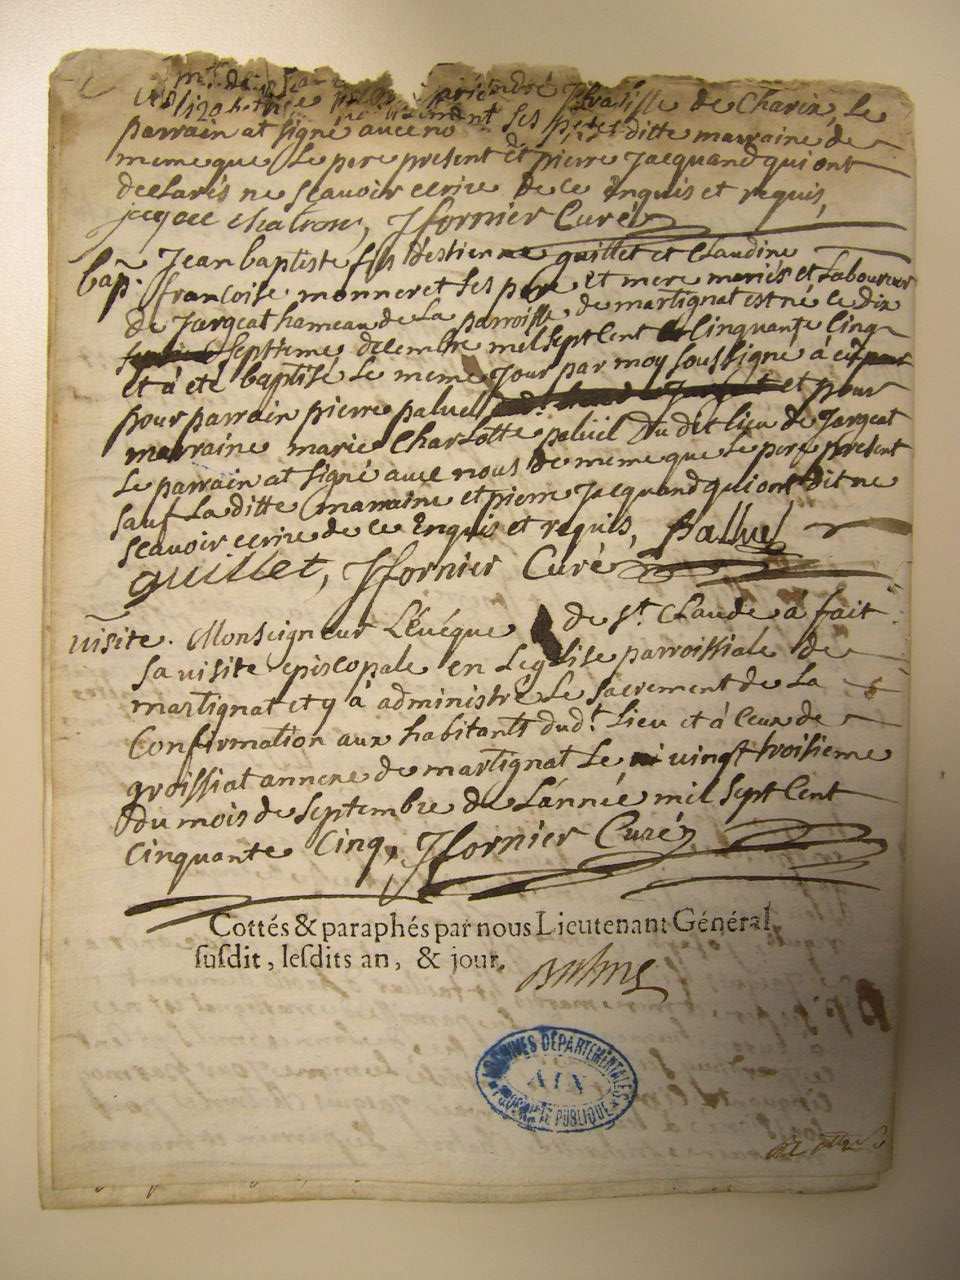 de Charix, Le
parrain at signé avec no ses pere et ditte marraine de
meme que Le pere present et pierre Jacquand qui ont
declarés ne scavoir ecrire de ce Enquis et requis,
jacque chatron, Jfornier Curé
bap. Jean baptiste fils d'estienne guillet et Claudine
francoise monneret ses pere et mere mariés et Laboureur
de Jargeat hameau de La parroisse de martignat est né Le dix
septieme decembre mil sept Cent Cinquante Cinq
et à été baptisé Le meme Jour par moy soussigné à eû
pour parrain pierre paluel et pour
marraine marie Charlotte paluel Du dit Lieu de Jargeat
Le parrain at signé avec nous de meme que Le pere present
sauf La ditte marraine et pierre Jacquand qui ont dit ne
scavoir ecrire de ce Enquis et requis, Palluel
guillet, Jfornier Curé
visite. Monseigneur L'Evêque de St. Claude à fait
sa visite episcopale en L'eglise parroissiale de
martignat et y à administré Le sacrement de La
Confirmation aux habitants dud.t Lieu et à Ceux de
groissiat annexe de martignat Le vingt troisieme
du mois de septembre de L'année mil sept Cent
Cinquante Cinq, Jfornier Curé
Cottés & paraphés par nous Lieutenant Général
susdit, lesdits an, & jour.
ARCHIVES DÉPARTEMENTALES
AIN
PROPRIÉTÉ PUBLIQUE